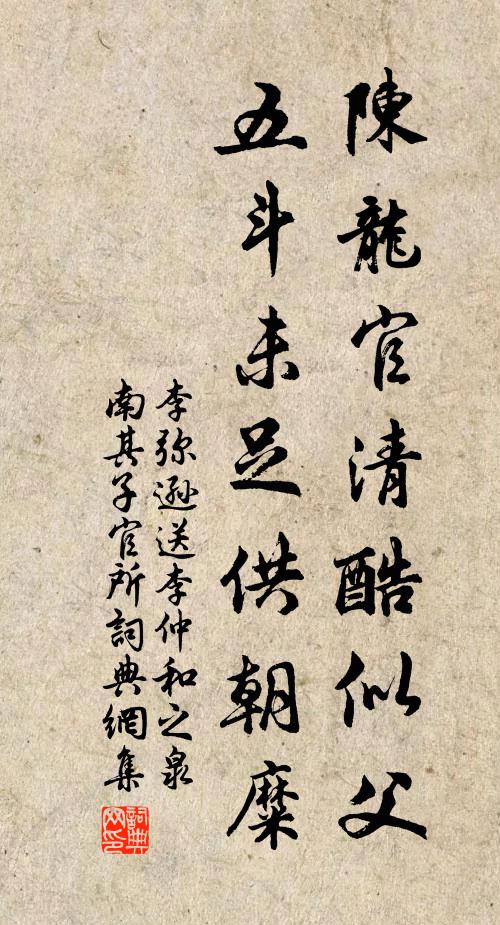 陳龍官清酷似父
五斗未足供朝糜
李弥遜送李仲和之泉
南其子官所詞典網集
詞典
网印